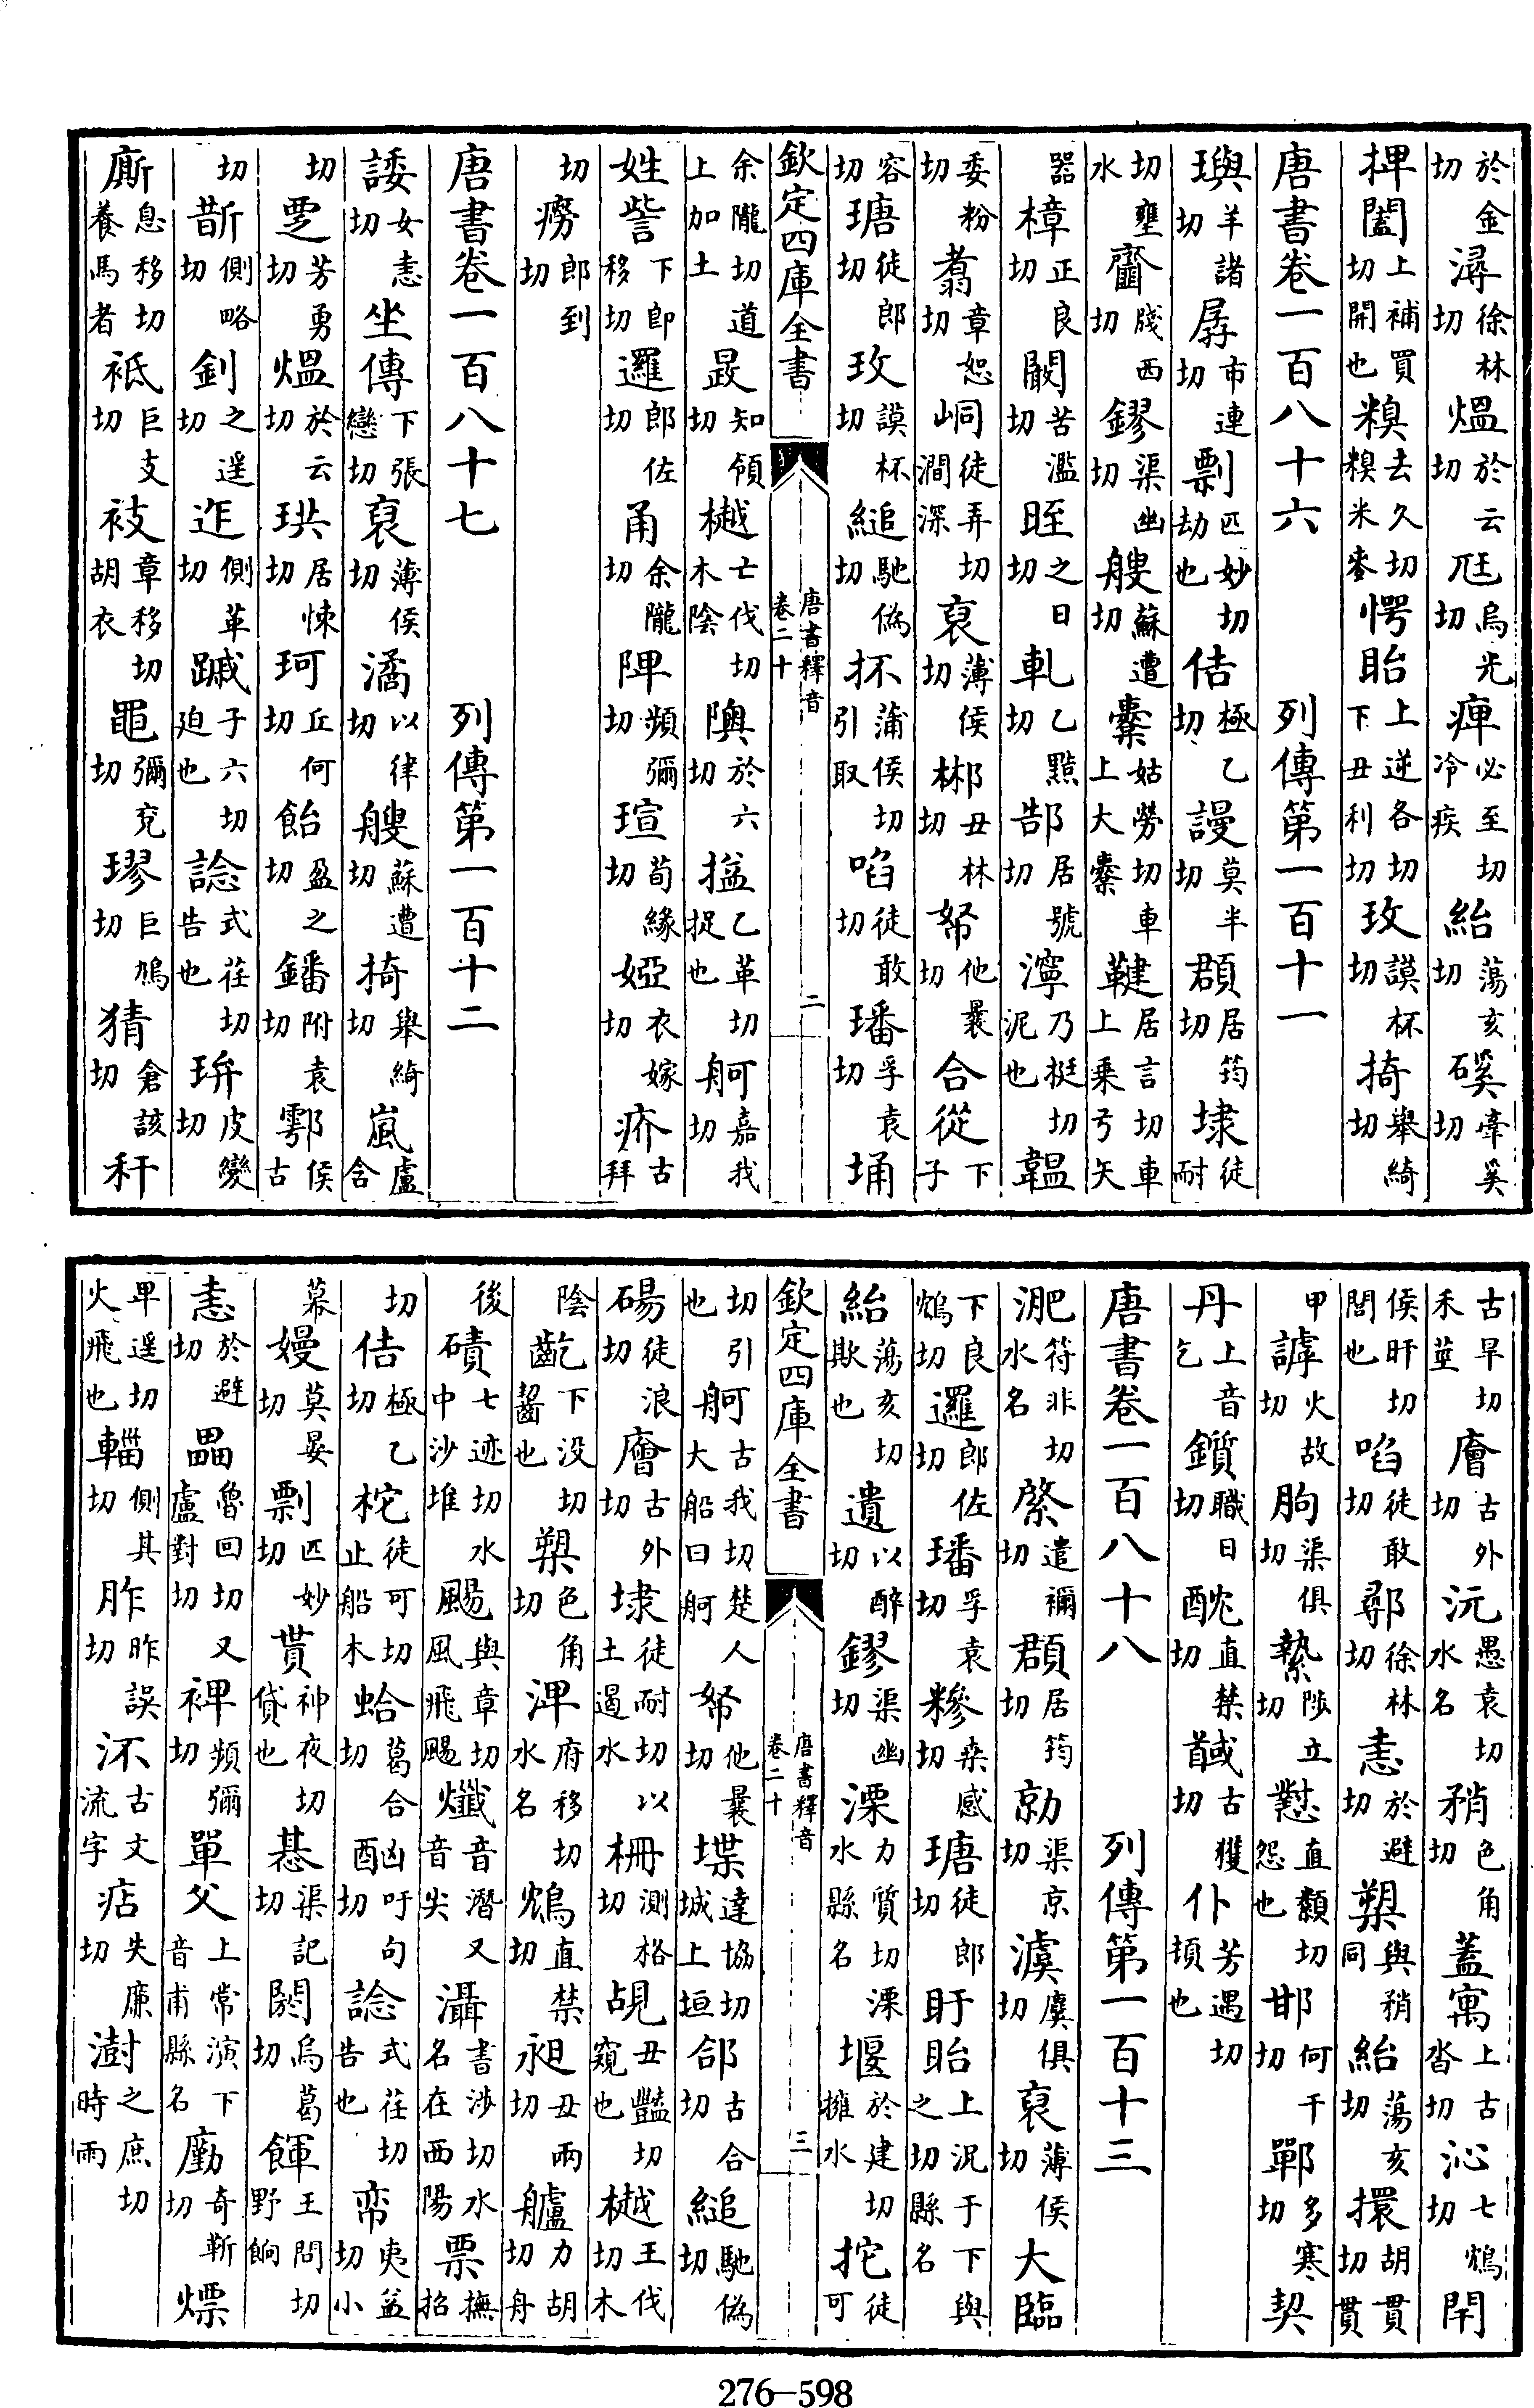 於金切潯徐林切熅於云切尫烏光切痺必至冷疾切紿蕩亥切磎牽奚切
捭闔上補買切開也糗去久切糗米麥愕眙上逆各切下丑利切玫謨杯切掎舉綺切
唐書卷一百八十六 列傳第一百十一
璵羊諸切孱市連切剽匹妙切劫也佶極乙切謾莫半切頵居筠切埭徒耐
切水壅齏牋西切鏐渠幽切艘蘇遭切櫜姑勞切車上大櫜鞬居言切車上乗弓矢
器樟正良切闞苦濫切晊之日切軋乙黠切郜居號切濘乃挺切泥也韞
委粉切翥章恕切峒徒弄切澗深裒薄侯切郴丑林切帑他曩切合從下子
容切瑭徒郎切玫謨杯切縋馳偽切抔蒲侯切引取啗徒敢切璠孚袁切埇
欽定四庫全書 唐書釋音卷二十 二
余隴切道上加土晸知領切樾亡伐切木陰隩於六切搤乙革切捉也舸嘉我切
姓訾下即移切邏郎佐切甬余隴切陴頻彌切瑄荀緣切婭衣嫁切疥古拜
切癆郎到切
唐書卷一百八十七 列傳第一百十二
諉女恚切坐傳下張戀切裒薄侯切潏以律切艘蘇遭切掎舉綺切嵐盧含
切覂芳勇切熅於云切珙居悚切珂丘何切飴盈之切鐇附袁切鄠侯古
切斮側略切釗之遥切迮側革切蹴子六切迫也諗式荏切告也玣皮變切
廝息移切養馬者袛巨支切衼章移切胡衣黽彌兖切璆巨鳩切猜倉該切秆
古旱切禾莖廥古外切沅愚袁切水名矟色角切蓋寓上古沓切沁七鴆切閈
侯旰切閭也啗徒敢切鄩徐林切恚於避切槊與矟同紿蕩亥切擐胡貫切貫
甲謼火故切朐渠俱切縶陟立切懟直纇切怨也邯何干切鄲多寒切契
丹上音乞鑕職日切酖直禁切馘古獲切仆芳遇切損也
唐書卷一百八十八 列傳第一百十三
淝符非切水名綮遣禰切頵居筠切勍渠京切澞虞俱切裒薄侯切大臨
下良鴆切邏郎佐切璠孚袁切糝桑感切瑭徒郎切盱眙上況于切下與之切縣名
紿蕩亥切欺也遺以醉切鏐渠幽切溧力質切溧水縣名堰於建切擁水拕徒可
欽定四庫全書 唐書釋音卷二十 三
切引也舸古我切楚人大船曰舸帑他曩切堞達協切城上垣郃古合切縋馳偽切
碭徒浪切廥古外切埭徒耐切以土遏水柵測格切覘丑豔切窺也樾王伐切木
陰齕下没切齧也槊色角切渒府移切水名鴆直禁切昶丑兩切艫力胡切舟
後磧七迹切水中沙堆颺與章切風飛颺爓音潛又音尖灄書涉切水名在西陽票撫招
切佶極乙切柁徒可切正船木蛤葛合切酗吁句切諗式荏切告也帟夷益切小
幕嫚莫晏切剽匹妙切貰神夜切貸也惎渠記切閼烏葛切餫王問切野餉
恚於避切礨魯回切又盧對切裨頻彌切單父上常演切下音甫縣名㔍奇靳切熛
卑遥切火飛也輜側其切胙昨誤切沠古文流字痁失廉切澍之庶切時雨
276—598